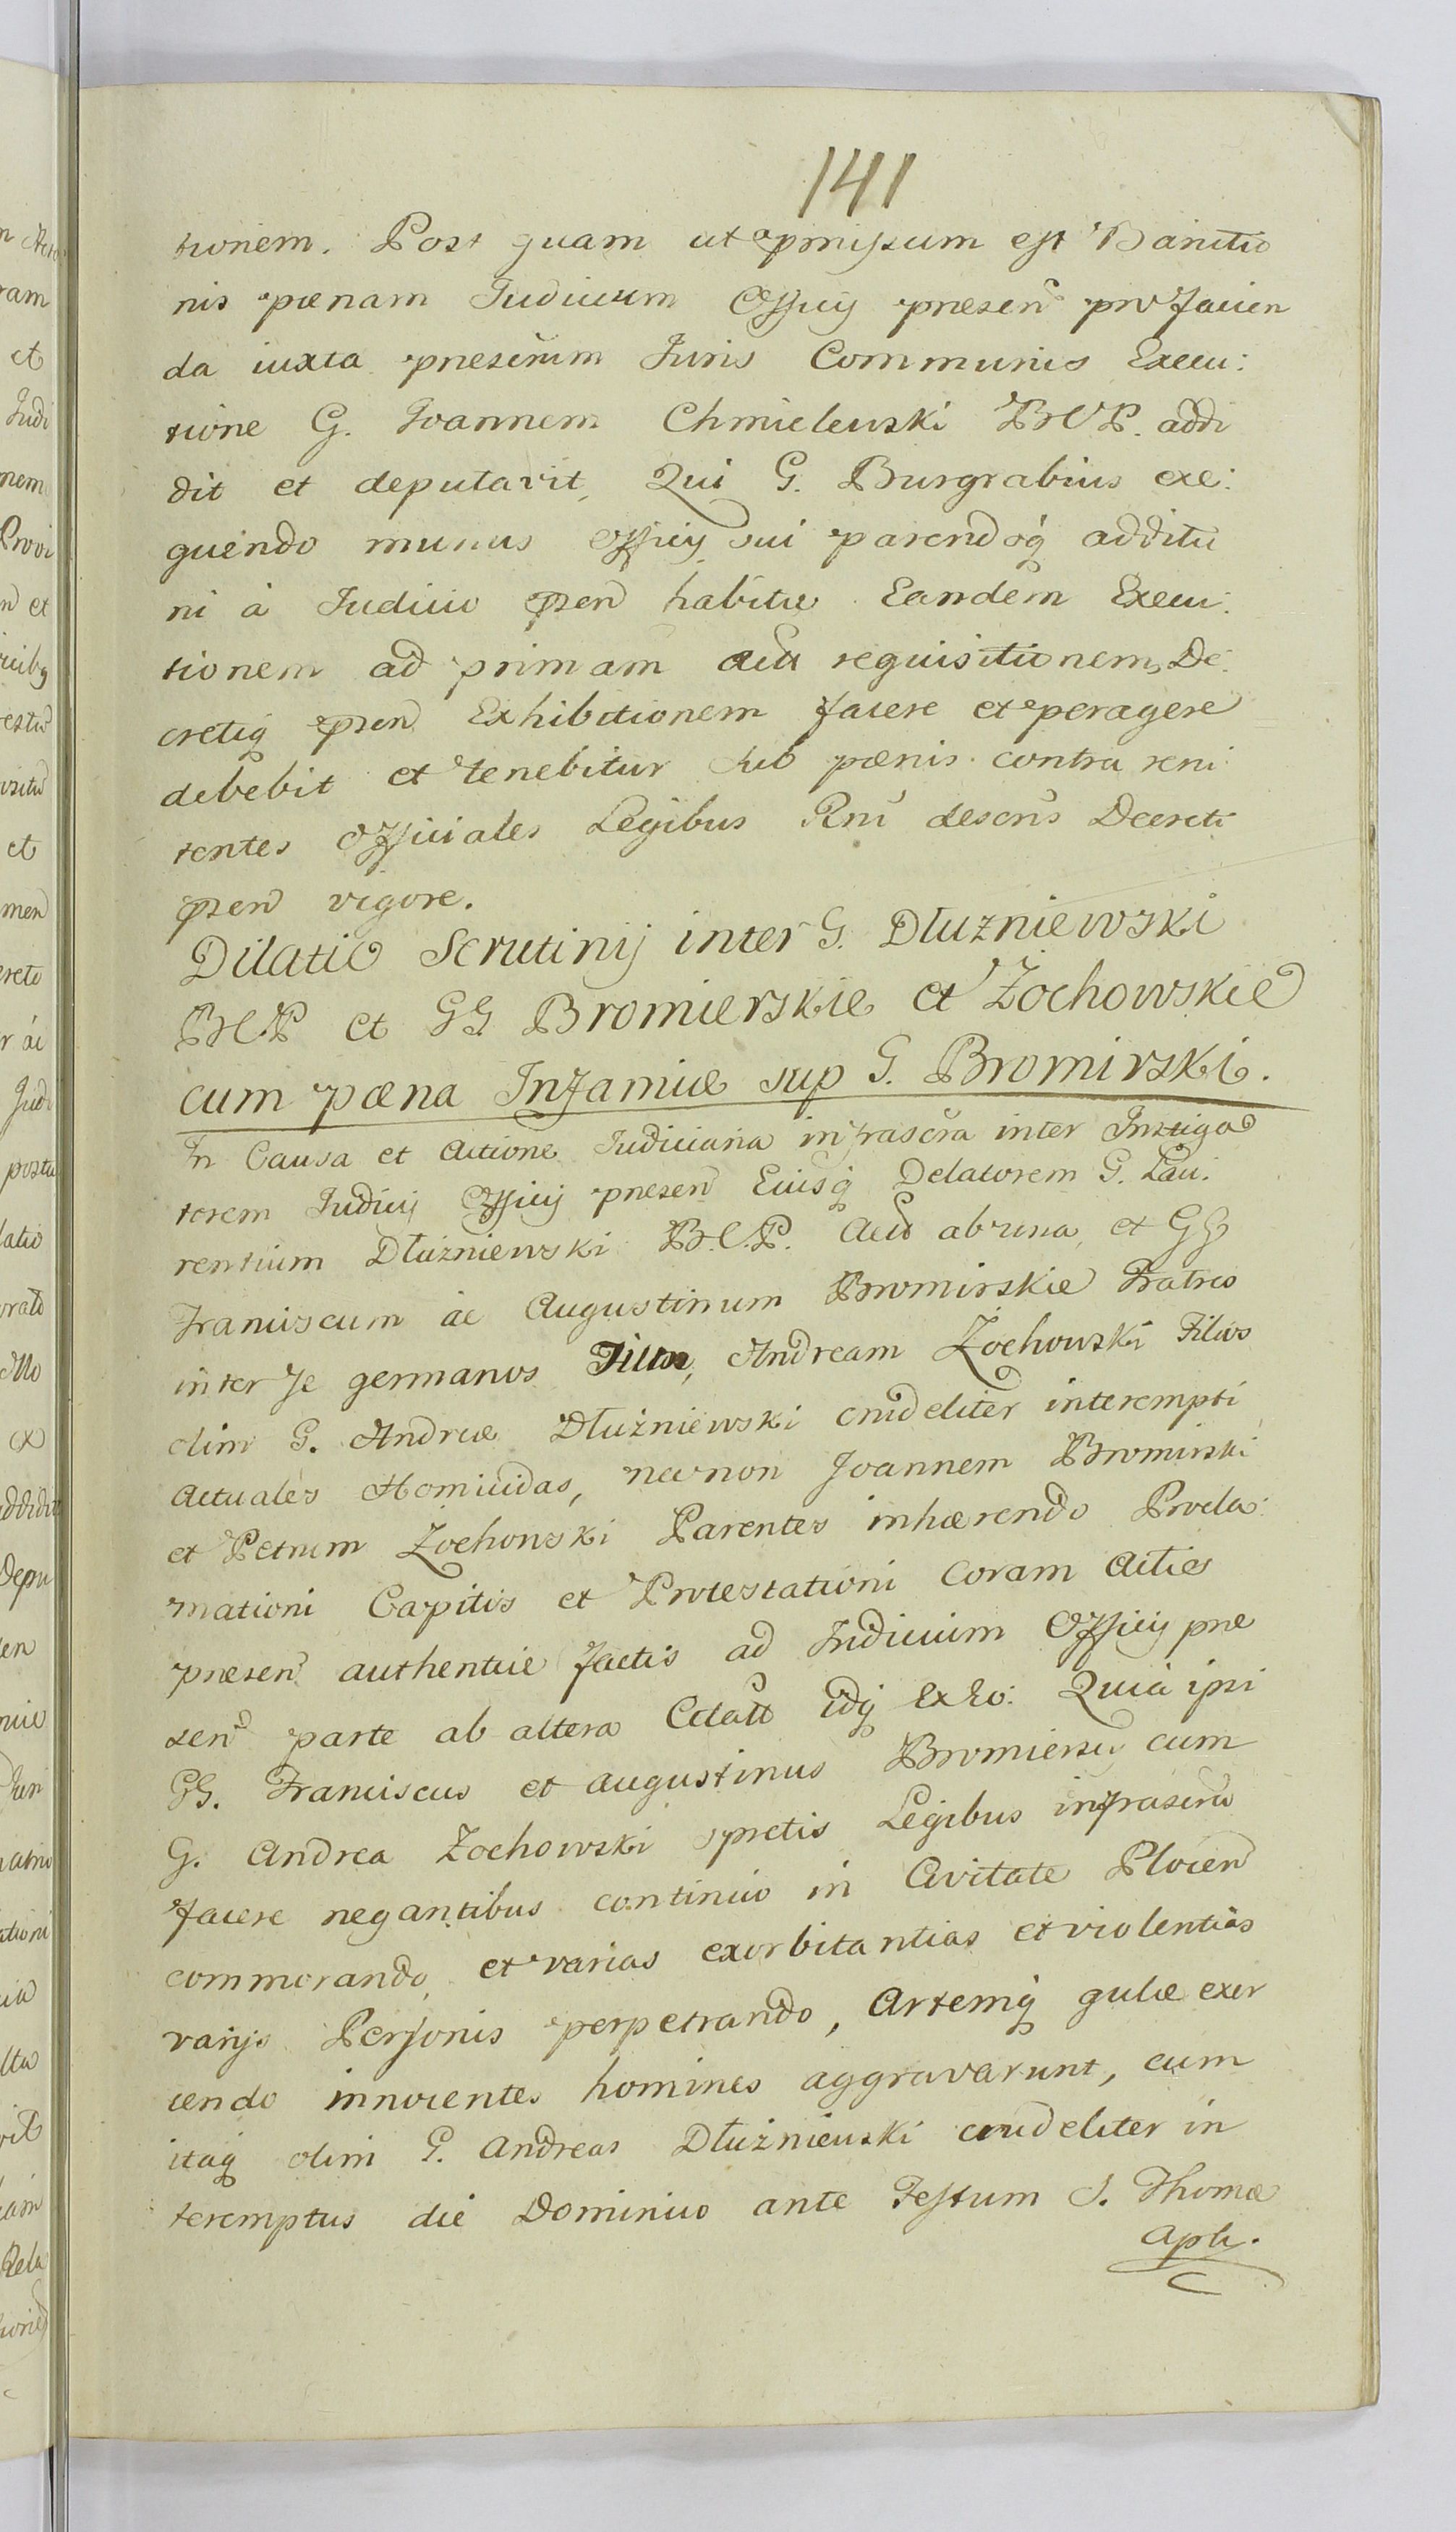 141
tionem. Post quam ut pmissum est Banitio
nis pœnam Judicium Officij præsen pro facien
da iuxta præscrum Juris Communis Execu:
tione G. Joannem Chmielewski BCP. addi
dit et deputavit, Qui G. Burgrabius exe:
quendo munus Officij sui parendoq̃ additi
ni à Judicio pzen habitæ Eandem Execu:
tionem ad primam requisitionem, De:
cretiq̃ pzen Exhibitionem facere et peragere
debebit et tenebitur sub pœnis contra reni
tentes Officiales Legibus Rni descris Decreti
pzen vigore.
Dilatio Scrutinij inter G. Dłuzniewski
BCP et GG Bromierskie et Żochowskie
cum pœna Infamiæ sup G. Bromirski.
In Causa et Actione Judiciaria infrascra inter Instiga
torem Judicij Officij præsen Eiusq̃ Delatorem G. Lau:
rentium Dłużniewski B.C.P. ab una, et GG
Franciscum ac Augustinum Bromirskie Fratres
inter se germanos Andream Żochowski Filios
olim G. Andreæ Dłużniewski crudeliter interempti
Actuales Homicidas, necnon Joannem Bromirski
et Petrum Żochowski Parentes inhærendo Procla:
mationi Capitis et Protestationi Coram Actis
præsen authentice factis ad Judicium Officij præ
sen parte ab altera Citatt idq̃ Exeo: Quia ipsi
GG. Franciscus et Augustinus Bromierscy cum
G. Andrea Żochowski spretis Legibus infrascra
facere negantibus continuo in Civitate Plocen
commorando, et varias exorbitantias et violentias
varijs Personis perpetrando, Artemq̃ gulæ exer
cendo innocentes homines aggravarunt, cum
itaq̃ olim G. Andreas Dłużniewski crudeliter in
teremptus die Dominico ante Festum S. Thomæ
Apli.